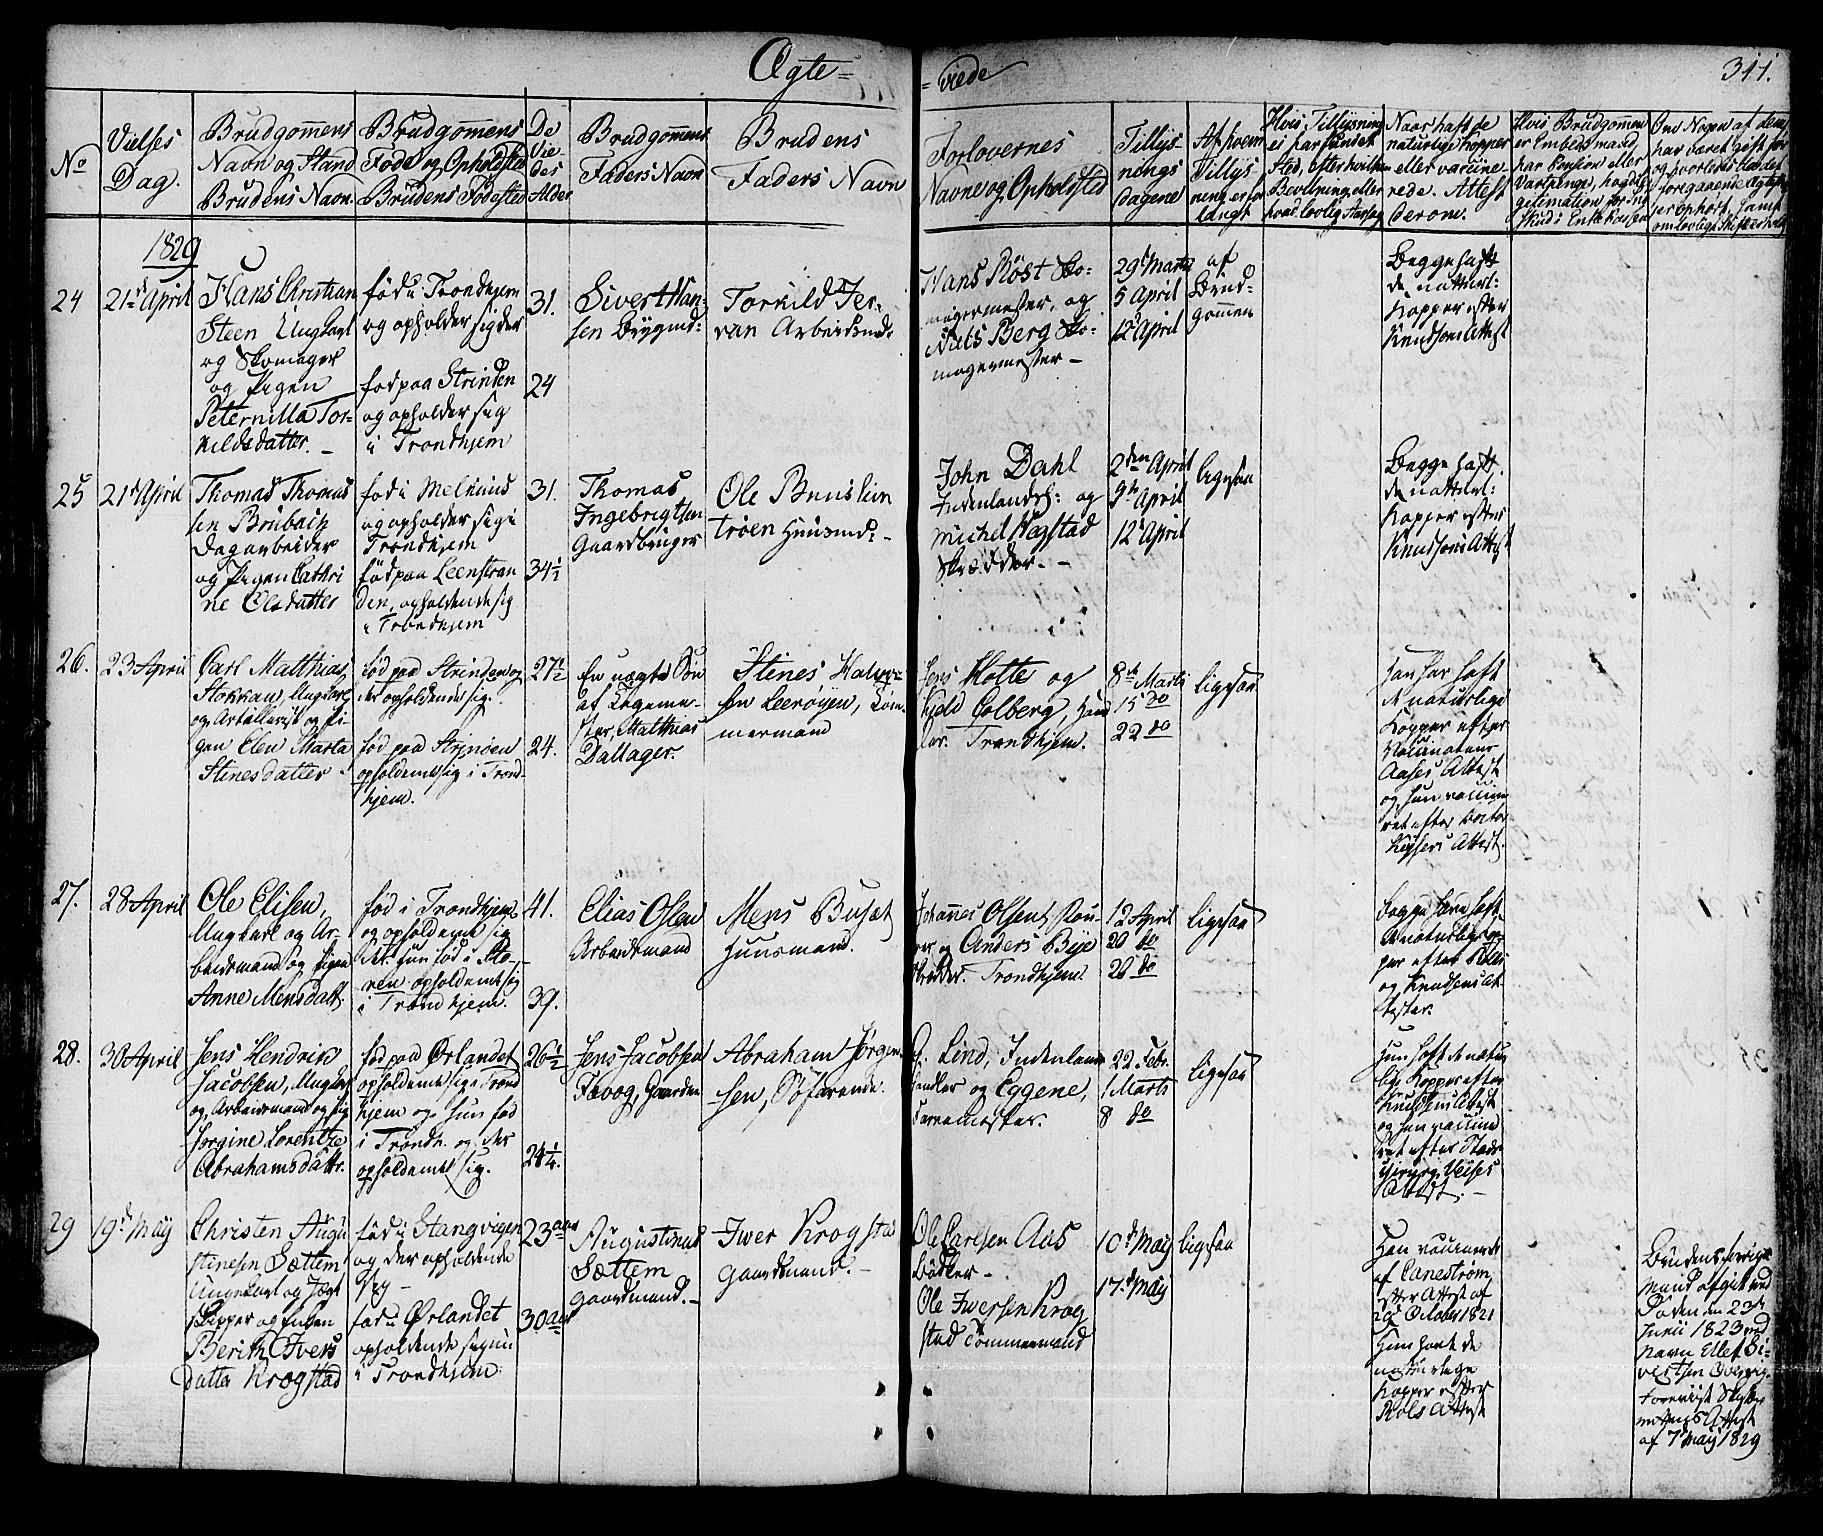 Ægte=
= viede
311.
No
Vielses
Dag.
Brudgom̄ens
Navn og Stand
Brudens Navn
Brudgom̄ens
Føde og Opholdsted
Brudens Fødested
De
Vie-
des
Alder
Brudgom̄ens
Faders Navn
Brudens
Faders Navn
Forlovernes
Navne og Opholdsted
Tillys-
nings
Dagene
Af hvem
Tillys
ning er for
langt
Hvis Tillysning
ei har fundet
Sted, efter hvilken
Bevillning eller
hvad lovlig Aarsag
Naar hafte de
naturlige kopper
eller vaccine-
rede. Attest
derom.
Hvis Brudgom̄en
er Embedsmand,
har Pension eller
Vartpenge,
gitimation for Ind
skud i Enke Kassen
Om Nogen af dem
har været gift før
og hvorledes
foregaaende Ægteska
er ophørt, samt
om lovligt Skifte er holdt
1829
24
21d April
Hans Christian
Steen Ungkarl
og Skomager
og Pigen
Peternilla Tor-
kildsdatter. -
fød i Trondhjem
og opholder sig der
fød paa Strinden
og opholder sig
i Trondhjem
31.
24
Sivert Han-
sen Bygmd:
Torkild Jer-
van Arbeidsmd:
Hans Röst Sko-
magermester, og
Niels Berg Sko-
magermester -
29d Marti
5 April
12 April
af
Brud-
gomen
Begge haft
de natturl:
kopper efter
Knudsens Attest
25
21d April
Thomas Thomas
sen Brubach
Dagarbeider
og Pigen Cathri
ne Olsdatter
fød i Melhuus
og opholder sig i
Trondhjem
fød paa Leenstran
den, opholdende sig
i Trondhjem
31.
34½
Thomas
Ingebrigtsen
Gaardbruger
Ole Buuslien
trøen Huusmd: -
John Dahl
Indenlandsh: og
Michel Hegstad
Skrædder. -
2den April
9de April
12d April
ligesaa
Begge haft
de natturl:
kopper efter
Knudsens Attest
26.
23 April
Carl Matthias
Stokkan, Ungkarl
og Artellerist og Pi-
gen Elen Marta
Stinesdatter.
fød paa Strinden og
der opholdende sig.
fød paa Strinden
opholdende sig i Trond-
hjem.
27½
24.
En uægte Søn
af Tegeme-
ster, Matthias
Dallager.
Stines Halvor-
sen Leerøyen, Tøm-
mermand
Jens Motte og
Kjeld Colberg, Hand
ler. Trondhjem.
8de Marti
15 do
22 do
ligesaa
Han har haft
de naturlige
Kopper efter
Vaccinateur
Aases Attest
og hun vaccine
ret efter Doctor
Keysers Attest.
27.
28 April
Ole Elisen,
Ungkarl og Ar-
beidsmand og Pigen
Anne Mensdatt.
fød i Trondhjem
og opholdende sig
der. hun fød i Stø-
ren opholdende sig
i Trondhjem.
41.
39.
Elias Olsen
Arbeidsmand
Mens Busæt
Huusmand.
Johannes Olsen
og Anders Bye
Skrædder. Trondhjem
12 April
20 do
26 do
ligesaa
begge have haft
de naturlige kop-
per efter
og Knudsens At-
tester.
28.
30 April
Jens Hendrik
Jacobsen, Ungkarl
og Arbeidsmand og Pig
Jørgine Lorentze
Abrahamsdattr.
fød paa Ørlandet
opholdende sig i Trond
hjem og hun fød
i Trondh. og der
opholdende sig.
26½
24¼.
Jens Jacobsen
Gaarden
Abraham Jørgen-
sen, Søfarende.
Lind, Indenlans
handler og Eggene,
Farvemester.
22 Febr.
1 Marti
8 do
ligesaa
Hun haft de natur
lige Kopper efter
Knudsens Attest
og han vaccine
ret efter Stads
Chirurg Veises
Attest. -
29
19d May
Christen Augu
stinesen Sættem
Ungekarl og Jagt
Skipper og Enken
Berith Ivers
datter Krogstad
fød i Stangvigen
og der opholdende
sig -
fød i Ørlandet
opholdende sig nu
i Trondhjem.
23 aar
30 aar
Augustinus
Sættem
Gaardmand. -
Iwer Krogstad
Gaardmand. -
Ole Carlsen Aas
Bødker -
Ole Iwersen Krog
stad Tommermand
10d May
17d May
ligesaa
Han vaccineret
af Canestrøm
efter Attest af
29 October 1821
Hun havt de
naturlige
kopper efter
Attest
Brudens forrige
Mand afgik ved
Døden den 23de
Junii 1823 ved
Navn Ellef Si-
vertsen
foreviist Skifte
rettens Attest
af 7 May 1829